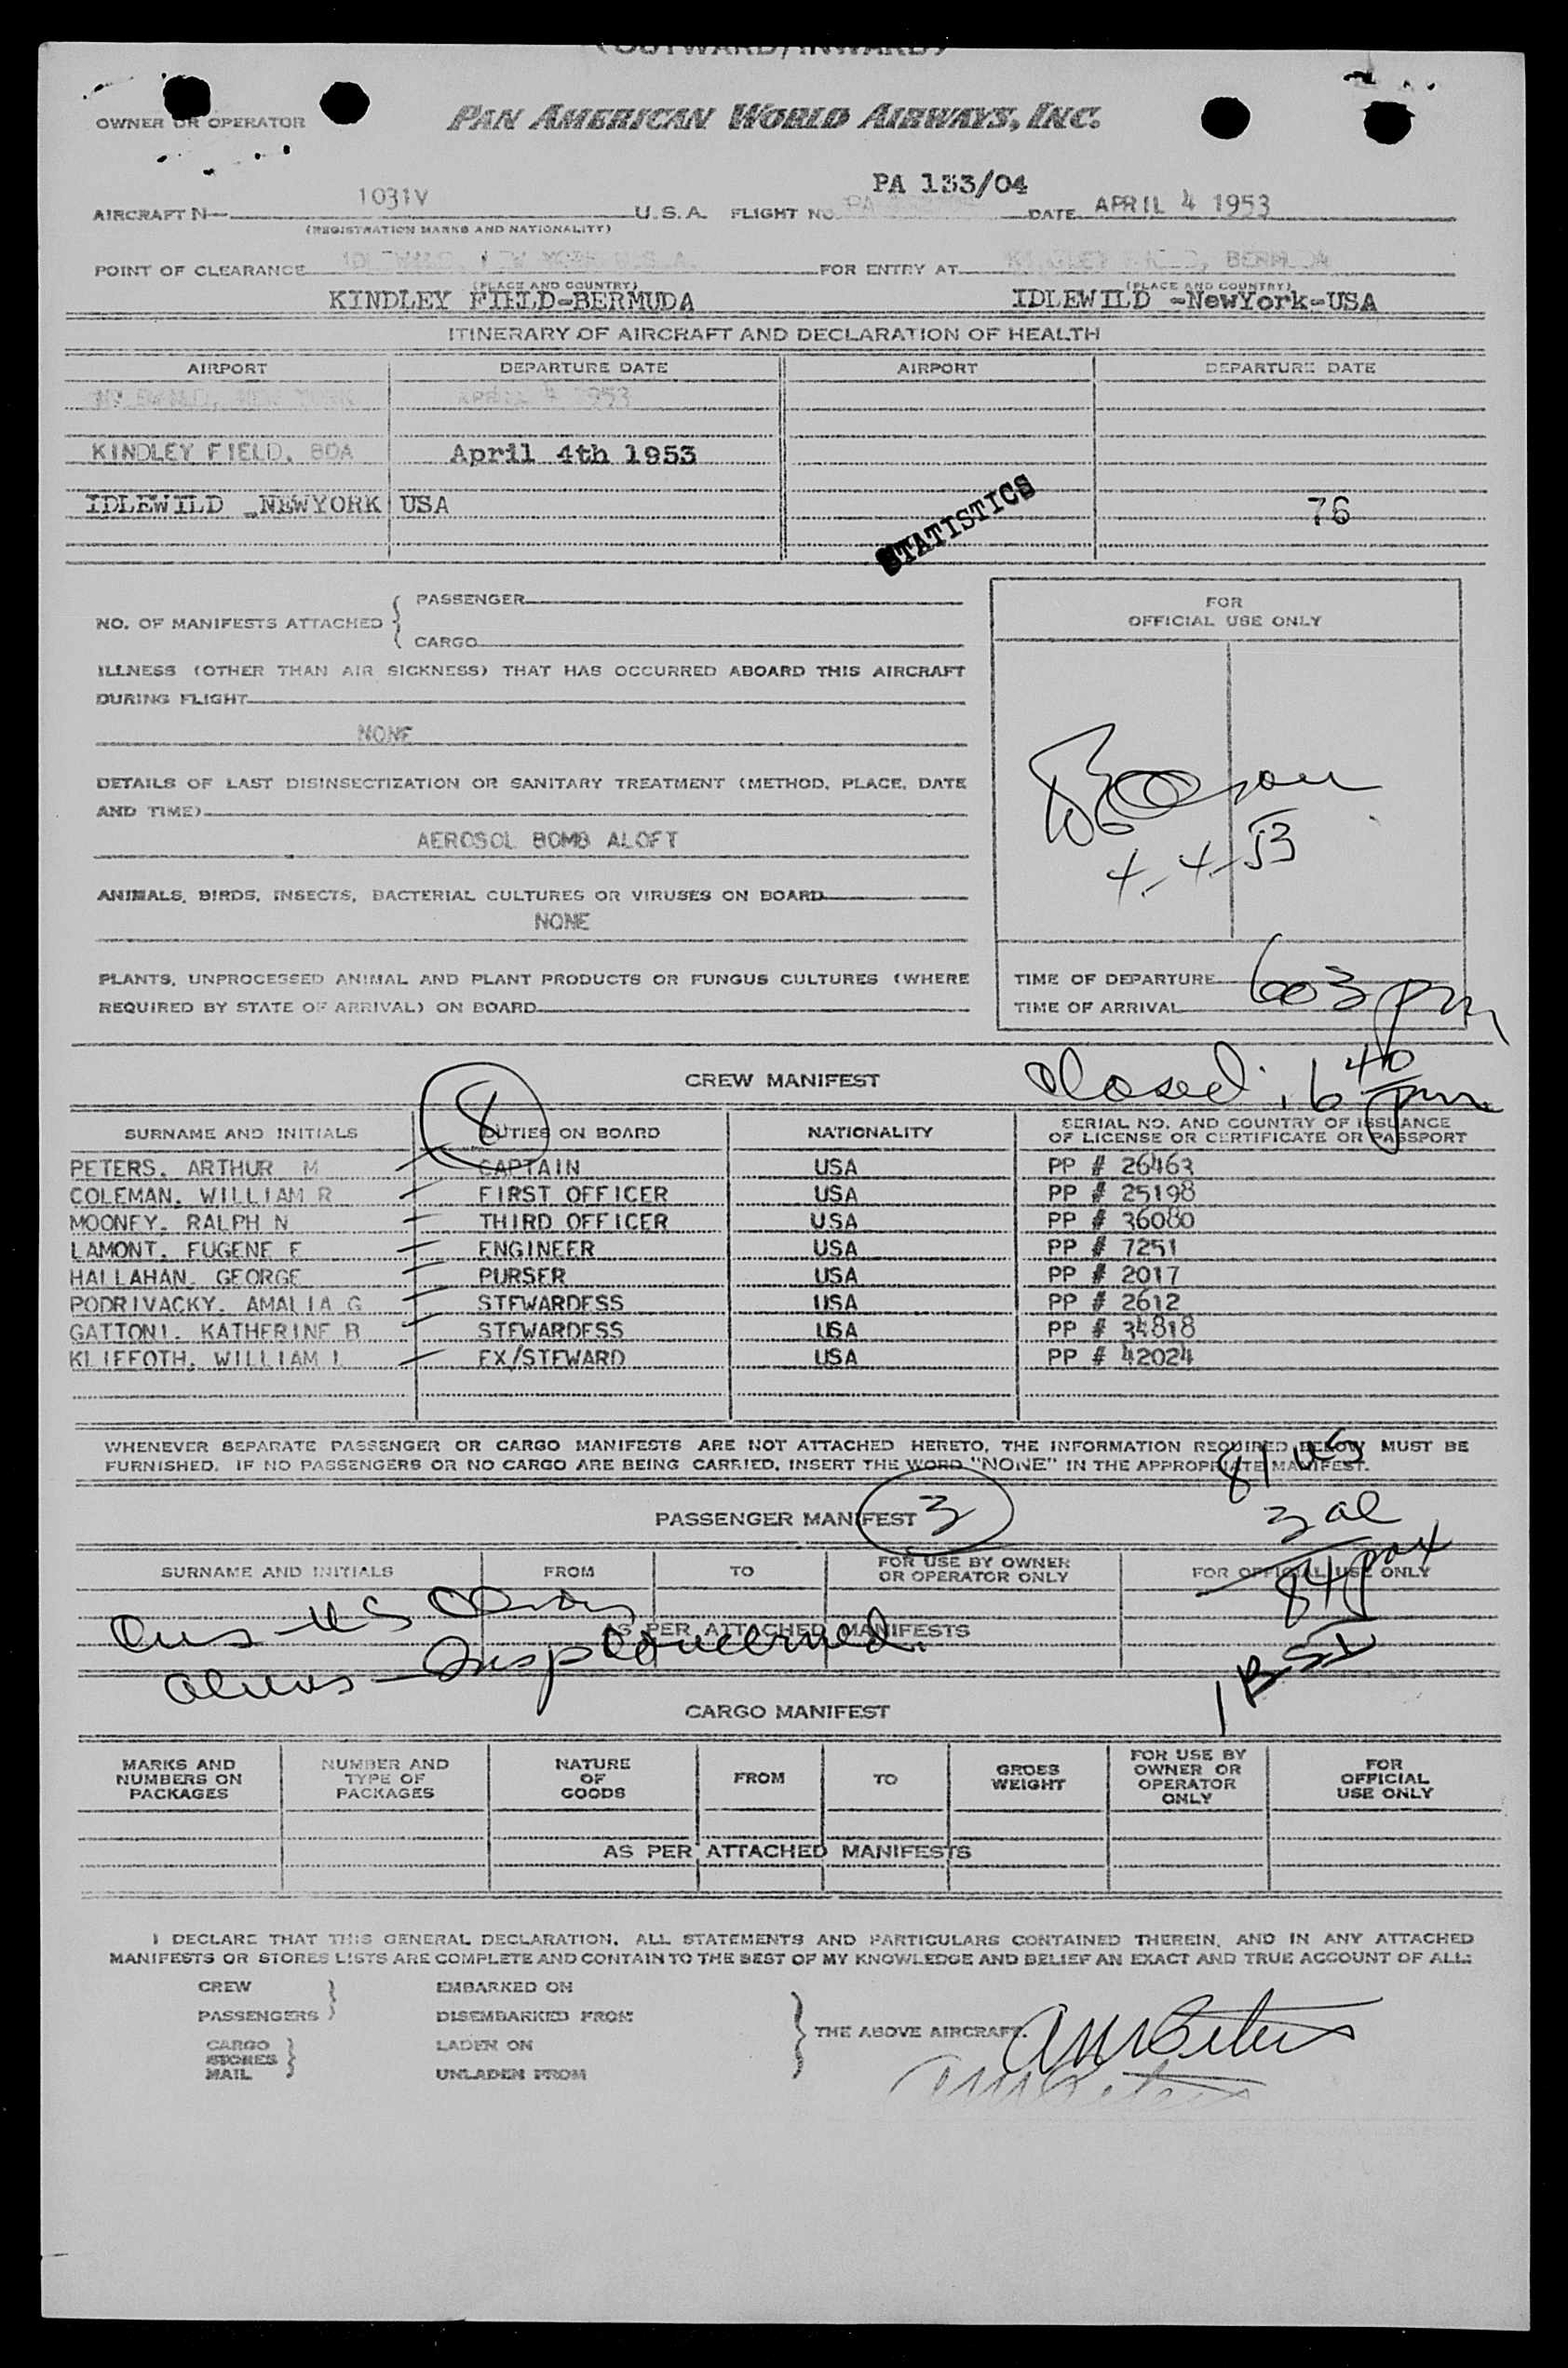 (OUTWARD/INWARD)
OWNER OR OPERATOR PAN AMERICAN WORLD AIRWAYS, INC.
PA 153/04
AIRCRAFT N- 1031V U.S.A. FLIGHT NO. DATE APRIL 4 1953
(REGISTRATION MARKS AND NATIONALITY)
POINT OF CLEARANCE IDLEWILD, NEW YORK U.S.A. FOR ENTRY AT KINDLEY FIELD, BERMUDA
(PLACE AND COUNTRY) (PLACE AND COUNTRY)
KINDLEY FIELD-BERMUDA IDLEWILD -NewYork-USA
ITINERARY OF AIRCRAFT AND DECLARATION OF HEALTH
AIRPORT DEPARTURE DATE AIRPORT DEPARTURE DATE
IDLEWILD, NEW YORK APRIL 4 1953
KINDLEY FIELD, BDA April 4th 1953
IDLEWILD -NEWYORK USA
STATISTICS
76
NO. OF MANIFESTS ATTACHED { PASSENGER
CARGO
FOR
OFFICIAL USE ONLY
ILLNESS (OTHER THAN AIR SICKNESS) THAT HAS OCCURRED ABOARD THIS AIRCRAFT
DURING FLIGHT
NONE
DETAILS OF LAST DISINSECTIZATION OR SANITARY TREATMENT (METHOD, PLACE, DATE
AND TIME)
AEROSOL BOMB ALOFT
4-4-53
ANIMALS, BIRDS, INSECTS, BACTERIAL CULTURES OR VIRUSES ON BOARD
NONE
PLANTS, UNPROCESSED ANIMAL AND PLANT PRODUCTS OR FUNGUS CULTURES (WHERE
REQUIRED BY STATE OF ARRIVAL) ON BOARD
TIME OF DEPARTURE
603 pm
TIME OF ARRIVAL
CREW MANIFEST
Closed: 6 40 pm
8
SURNAME AND INITIALS DUTIES ON BOARD NATIONALITY SERIAL NO. AND COUNTRY OF ISSUANCE
OF LICENSE OR CERTIFICATE OR PASSPORT
PETERS, ARTHUR M CAPTAIN USA PP # 26463
COLEMAN, WILLIAM R FIRST OFFICER USA PP # 25198
MOONEY, RALPH N THIRD OFFICER USA PP # 36080
LAMONT, EUGENE E ENGINEER USA PP # 7251
HALLAHAN, GEORGE PURSER USA PP # 2017
PODRIVACKY, AMALIA G STEWARDESS USA PP # 2612
GATTONI, KATHERINE B STEWARDESS USA PP # 34818
KLIEFOTH, WILLIAM L EX/STEWARD USA PP # 42024
WHENEVER SEPARATE PASSENGER OR CARGO MANIFESTS ARE NOT ATTACHED HERETO, THE INFORMATION REQUIRED BELOW MUST BE
FURNISHED. IF NO PASSENGERS OR NO CARGO ARE BEING CARRIED, INSERT THE WORD "NONE" IN THE APPROPRIATE MANIFEST.
81 US
PASSENGER MANIFEST 3
3 al
84 pax
SURNAME AND INITIALS FROM TO FOR USE BY OWNER
OR OPERATOR ONLY FOR OFFICIAL USE ONLY
AS PER ATTACHED MANIFESTS
Aliens - Insp Concerned.
1 BSI
CARGO MANIFEST
MARKS AND
NUMBERS ON
PACKAGES
NUMBER AND
TYPE OF
PACKAGES
NATURE
OF
GOODS
FROM
TO
GROSS
WEIGHT
FOR USE BY
OWNER OR
OPERATOR
ONLY
FOR
OFFICIAL
USE ONLY
AS PER ATTACHED MANIFESTS
I DECLARE THAT THIS GENERAL DECLARATION, ALL STATEMENTS AND PARTICULARS CONTAINED THEREIN, AND IN ANY ATTACHED
MANIFESTS OR STORES LISTS ARE COMPLETE AND CONTAIN TO THE BEST OF MY KNOWLEDGE AND BELIEF AN EXACT AND TRUE ACCOUNT OF ALL:
CREW EMBARKED ON
PASSENGERS DISEMBARKED FROM
THE ABOVE AIRCRAFT.
AM Peters
CARGO LADEN ON
STORES
MAIL UNLADEN FROM
AM Peters